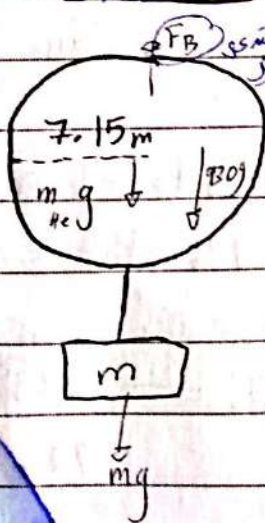 F_B
7.15m
m_He g
930g
m
mg